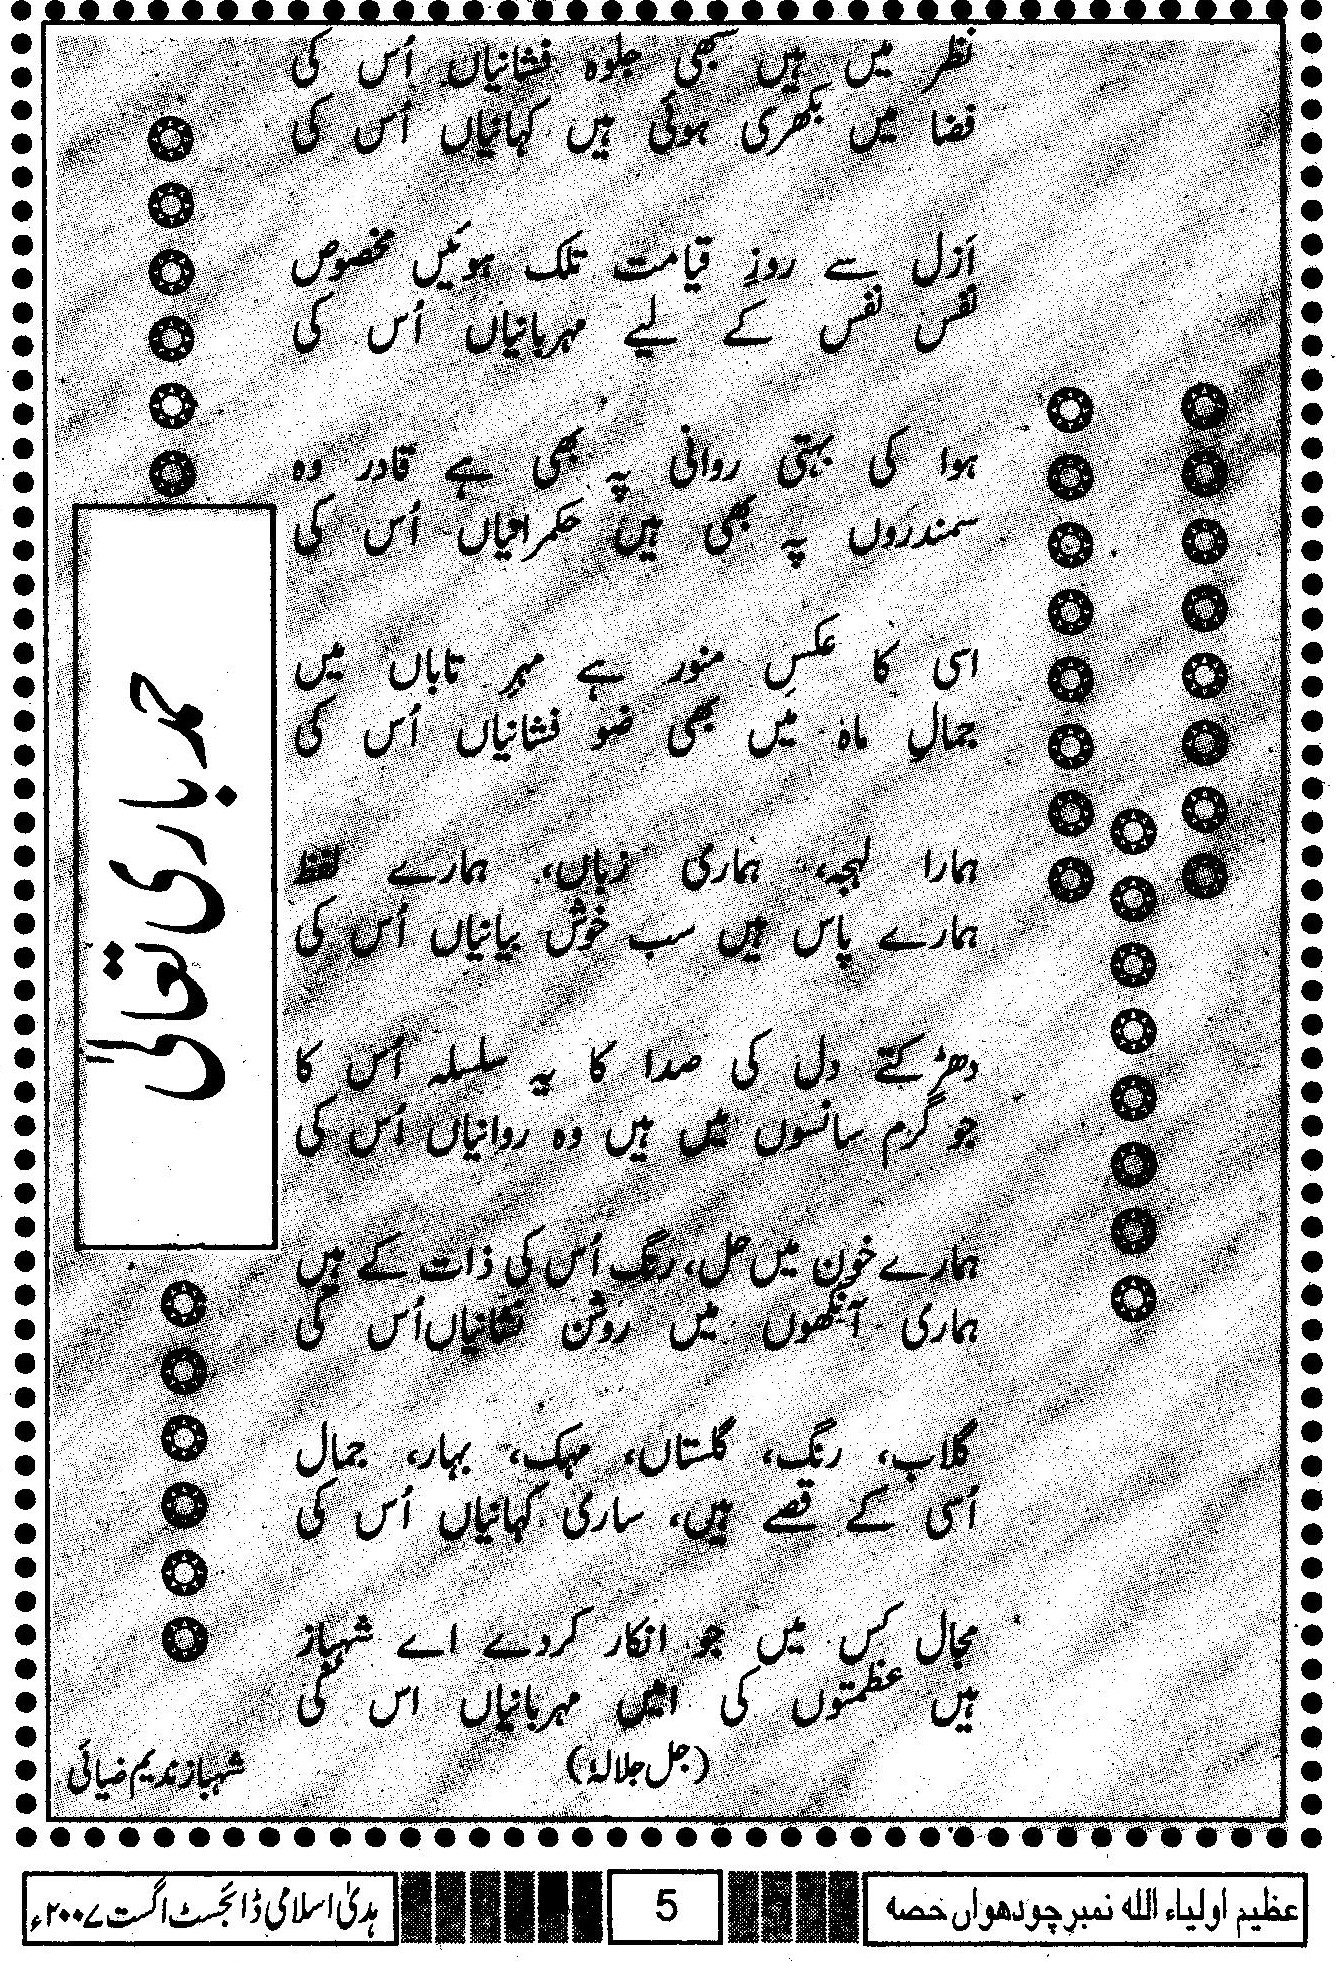 حمد باری تعالیٰ
نظر میں ہیں سبھی جلوہ فشانیاں اُس کی
فضا میں بکھری ہوئی ہیں کہانیاں اُس کی
اَزل سے روزِ قیامت تلک ہوئیں مخصوص
نفس نفس کے لیے مہربانیاں اُس کی
ہوا کی بہتی روانی پہ بھی ہے قادر وہ
سمندروں پہ بھی ہیں حکمرانیاں اُس کی
اسی کا عکسِ منور ہے مہرِ تاباں میں
جمالِ ماہ میں بھی ضو فشانیاں اُس کی
ہمارا لہجہ، ہماری زباں، ہمارے لفظ
ہمارے پاس ہیں سب خوش بیانیاں اُس کی
دھڑکتے دل کی صدا کا یہ سلسلہ اُس کا
جو گرم سانسوں میں ہیں وہ روانیاں اُس کی
ہمارے خون میں حل، رنگ اُس کی ذات کے ہیں
ہماری آنکھوں میں روشن نشانیاں اُس کی
گلاب، رنگ، گلستاں، مہک، بہار، جمال
اُسی کے قصے ہیں، ساری کہانیاں اُس کی
مجال کس میں جو انکار کردے اے شہباز
ہیں عظمتوں کی امیں مہربانیاں اس کی
(جل جلالہٗ)
شہباز ندیم ضیائی
عظیم اولیاء اللہ نمبر چودھواں حصہ
5
ہدیٰ اسلامی ڈائجسٹ اگست ۲۰۰۷ء